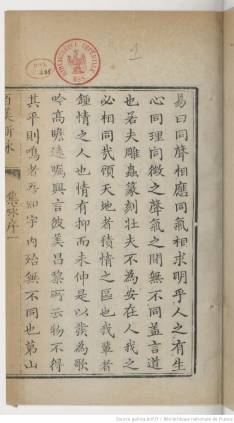 易曰同聲相應同氣相求明乎人之有生
心同理同微之聲氣之間無不同蓋言道
也若夫雕蟲篆刻壯夫不為安在人我之
必相同哉顧天地者積情之區也我輩者
鍾情之人也情有抑而未伸是以當為歌
吟高瞻遠矚興言彼美昌黎所云物不得
其平則鳴者乃知宇內殆無不同也第山
集咏序一
1
Source gallica.bnf.fr / Bibliothèque nationale de France